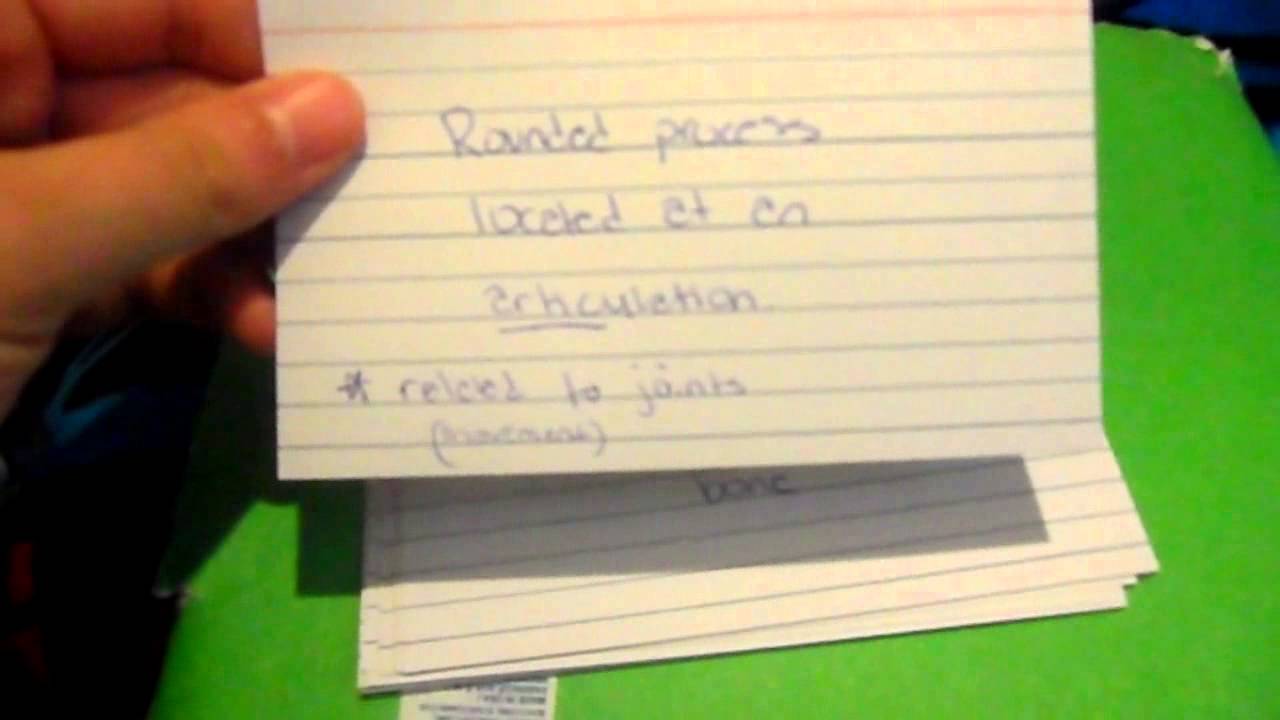 Rounded process
located at an
articulation.
* related to joints
(movement)
bone